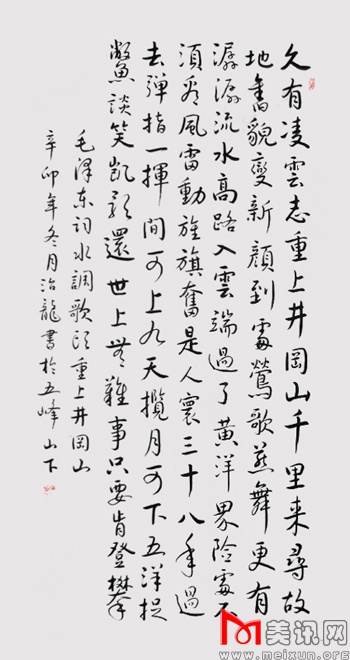 久有凌雲志重上井岡山千里来尋故
地舊貌變新顔到處鶯歌燕舞更有
潺潺流水高路入雲端過了黄洋界险處不
須看風雷動旌旗奮是人寰三十八年過
去彈指一揮間可上九天攬月可下五洋捉
鱉談笑凯歌還世上無難事只要肯登攀
毛泽东词水調歌頭重上井岡山
辛卯年冬月治龍書於五峰山下
美讯网
www.meixun.org